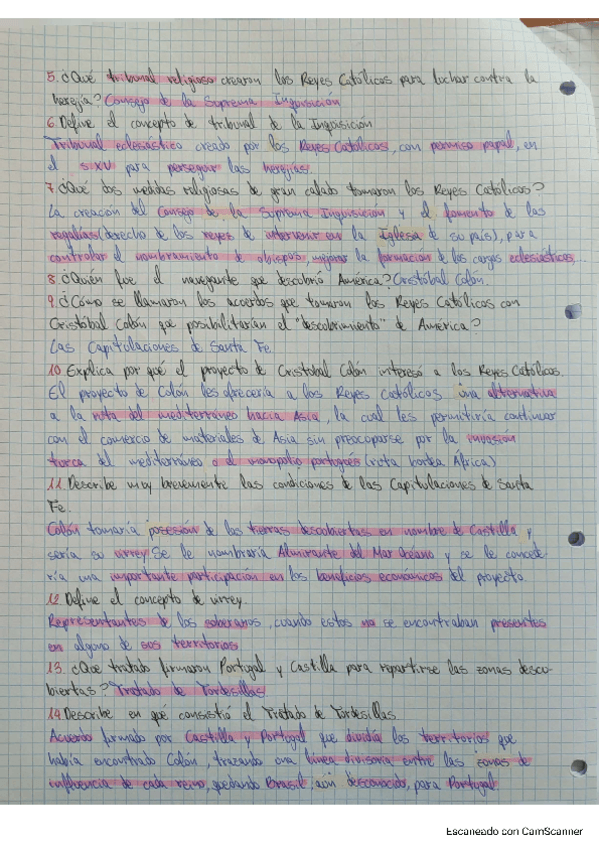 5. ¿Qué tribunal religioso crearon los Reyes Católicos para luchar contra la
herejía? Consejo de la Suprema Inquisición
6. Define el concepto de tribunal de la Inquisición
Tribunal eclesiástico creado por los Reyes Católicos, con permiso papal, en
el s.XV para perseguir las herejías.
7 ¿Qué dos medidas religiosas de gran calado tomaron los Reyes Católicos?
La creación del Consejo de la Suprema Inquisición y el fomento de las
regalías (derecho de los reyes de intervenir en la Iglesia de su país), para
controlar el nombramiento de obispos, mejorar la formación de los cargos eclesiásticos...
8 ¿Quién fue el navegante que descubrió América? Cristóbal Colón.
9. ¿Cómo se llamaron los acuerdos que tomaron los Reyes Católicos con
Cristóbal Colón que posibilitarían el "descubrimiento" de América?
Las Capitulaciones de Santa Fe
10 Explica por qué el proyecto de Cristobal Colón interesó a los Reyes Católicos.
El proyecto de Colón les ofrecería a los Reyes Católicos una alternativa
a la ruta del mediterráneo hacia Asia, la cual les permitiría continuar
con el comercio de materiales de Asia sin preocuparse por la invasión
turca del mediterráneo o el monopolio portugués (ruta bordea África)
11. Describe muy brevemente las condiciones de las Capitulaciones de Santa
Fe.
Colón tomaría posesión de las tierras descubiertas en nombre de Castilla y
sería su virrey. Se le nombraría Almirante del Mar Océano y se le concede-
ría una importante participación en los beneficios económicos del proyecto.
12. Define el concepto de virrey.
Representantes de los soberanos, cuando estos no se encontraban presentes
en alguno de sus territorios
13. ¿Qué tratado firmaron Portugal y Castilla para repartirse las zonas descu-
biertas? Tratado de Tordesillas
14. Describe en qué consistió el Tratado de Tordesillas
Acuerdo firmado por Castilla y Portugal que dividía los territorios que
había encontrado Colón, trazando una línea divisoria entre las zonas de
influencia de cada reino, quedando Brasil, aún desconocido, para Portugal
Escaneado con CamScanner